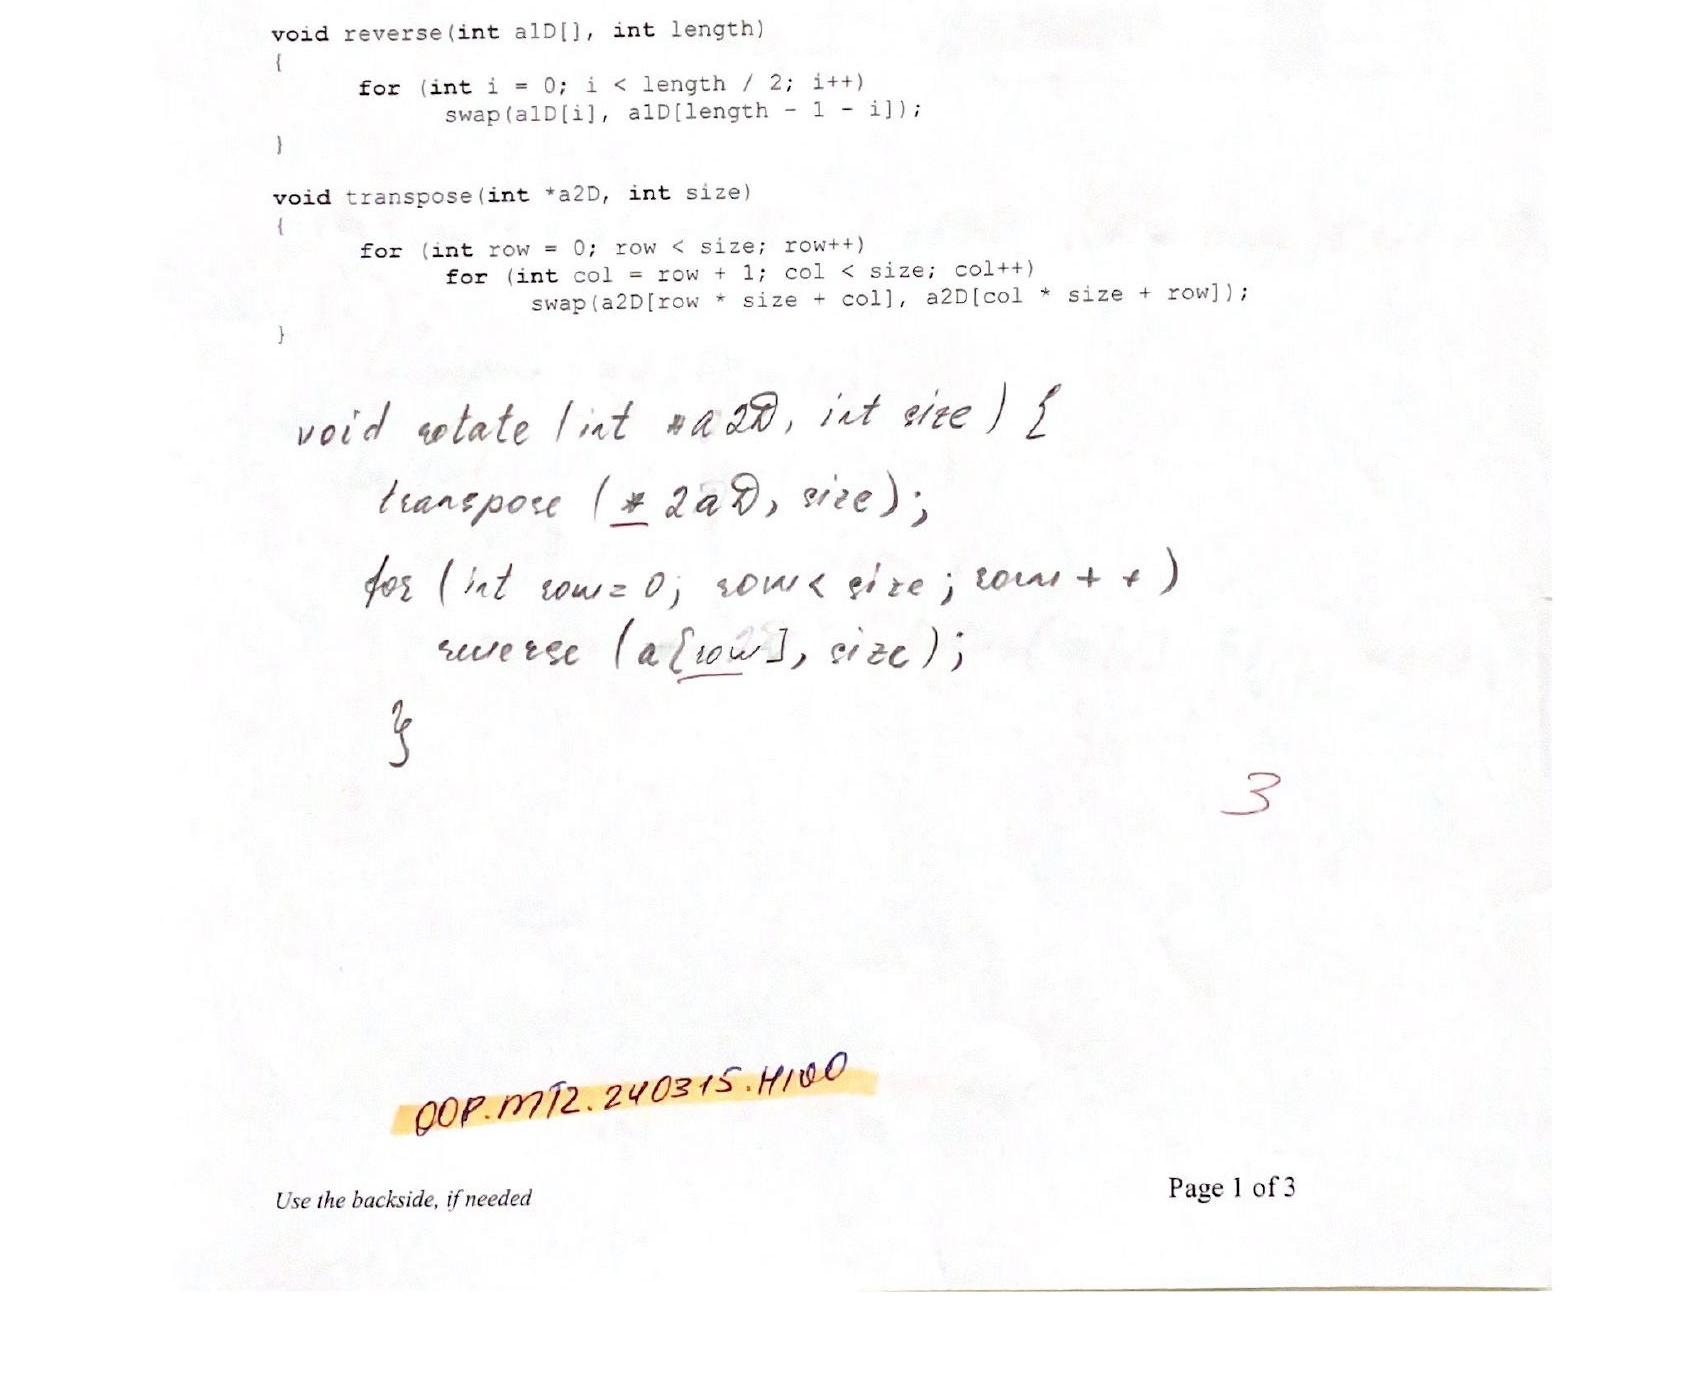 void reverse(int a1D[], int length)
{
for (int i = 0; i < length / 2; i++)
swap(a1D[i], a1D[length - 1 - i]);
}
void transpose(int *a2D, int size)
{
for (int row = 0; row < size; row++)
for (int col = row + 1; col < size; col++)
swap(a2D[row * size + col], a2D[col * size + row]);
}
void rotate (int *a2D, int size) {
transpose (* 2aD, size);
for (int row = 0; row < size; row++)
reverse (a[row], size);
}
3
OOP.MT2.240315.H100
Use the backside, if needed
Page 1 of 3